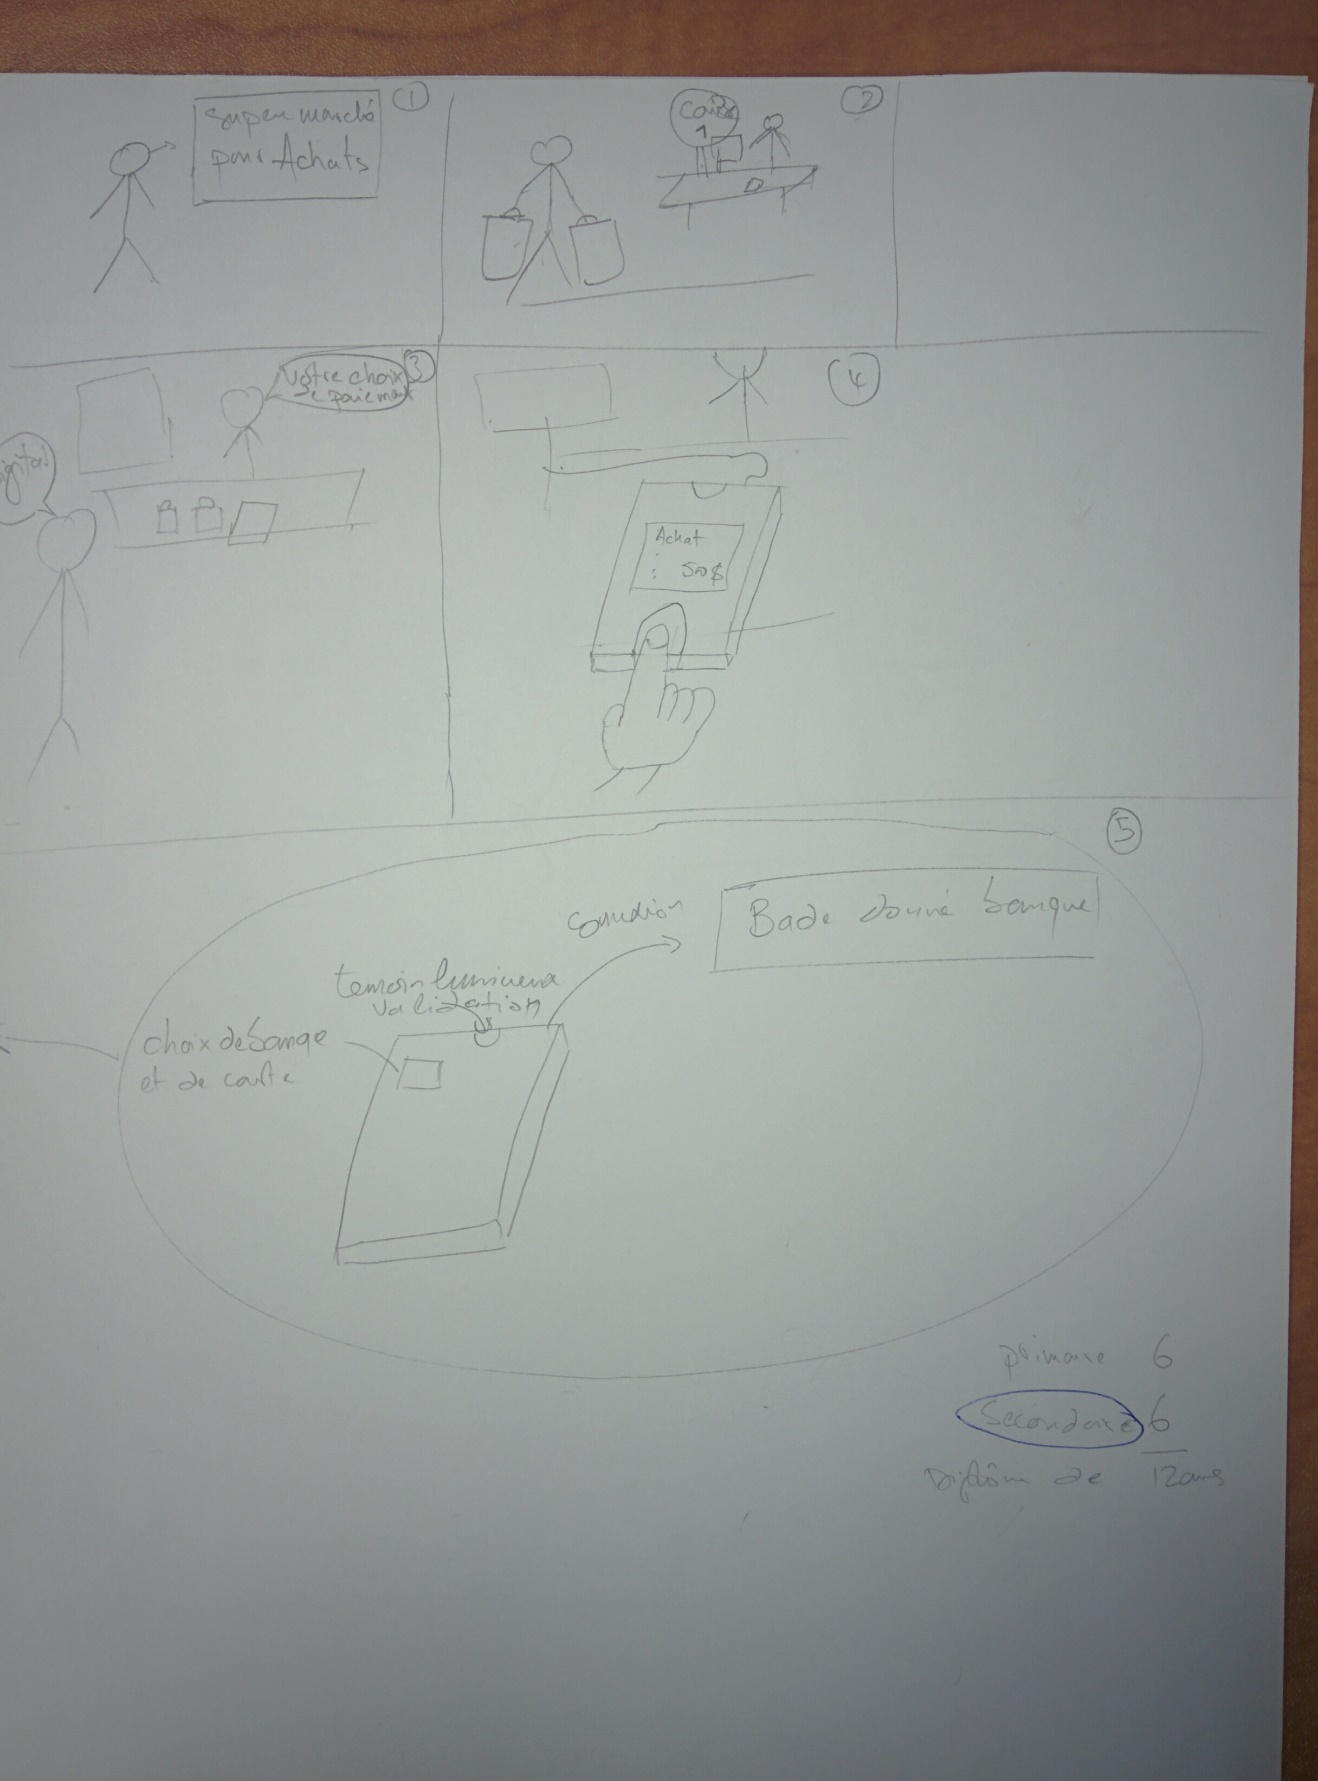 Supermarché
pour Achats
1
2
Caisse
1
Votre choix
de paiement
3
Digital
4
Achat
: 500$
5
Bade donné banque
temoin lumineux
validation
choix de banqe
et de carte
primaire 6
Secondaire 6
Diplôm de 12ans